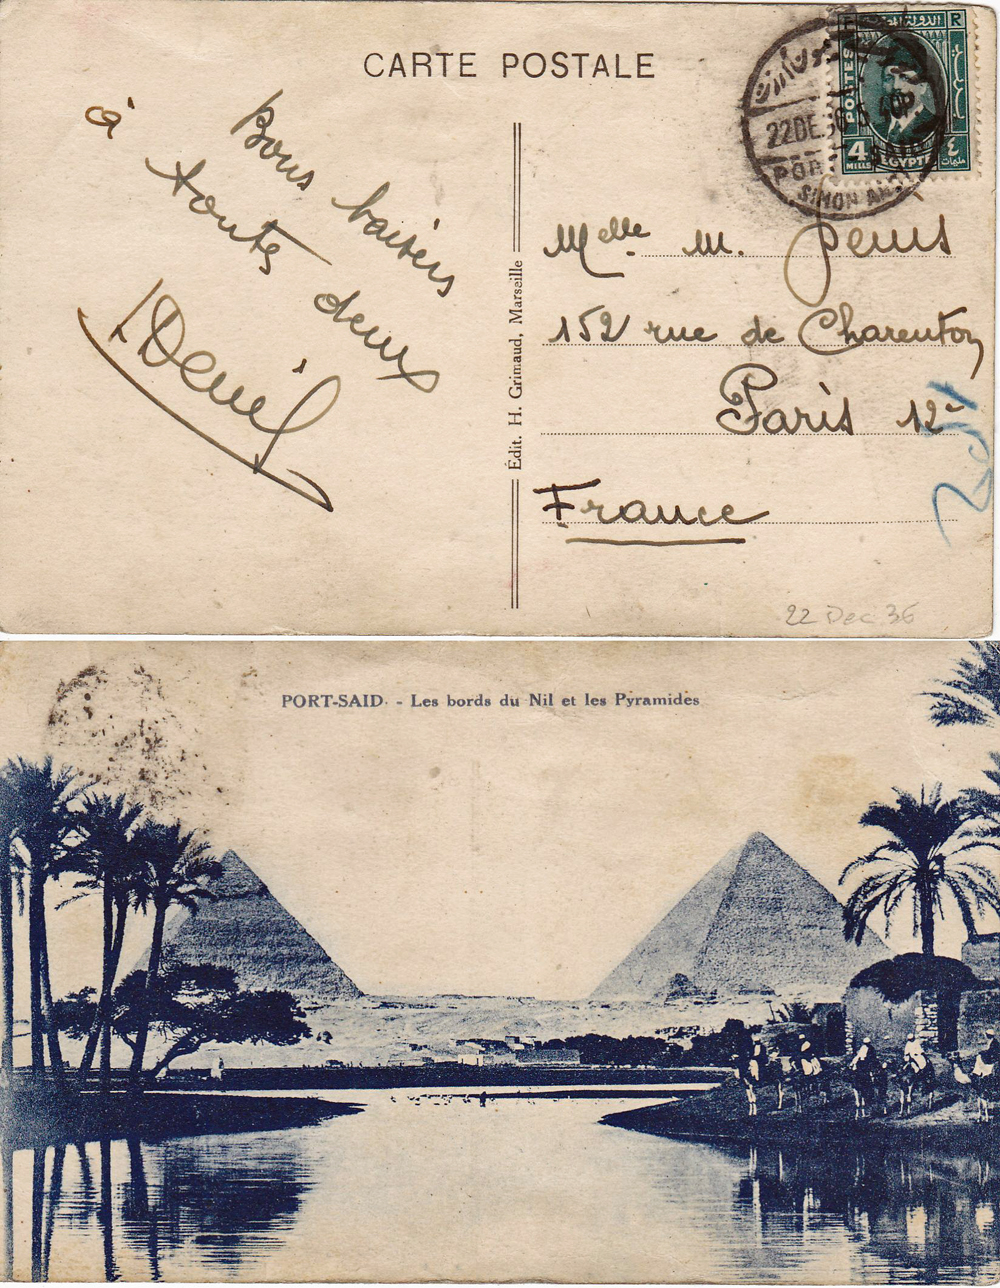 CARTE POSTALE
Bons baisers
à toutes deux
Édit. H. Grimaud, Marseille
F R
POSTES
4
MILLS
EGYPTE
٤
مليمات
22 DE. 36
POR
SIMON
Melle M.
152 rue de Charenton
Paris 12e
France
22 Dec 36
PORT-SAID - Les bords du Nil et les Pyramides